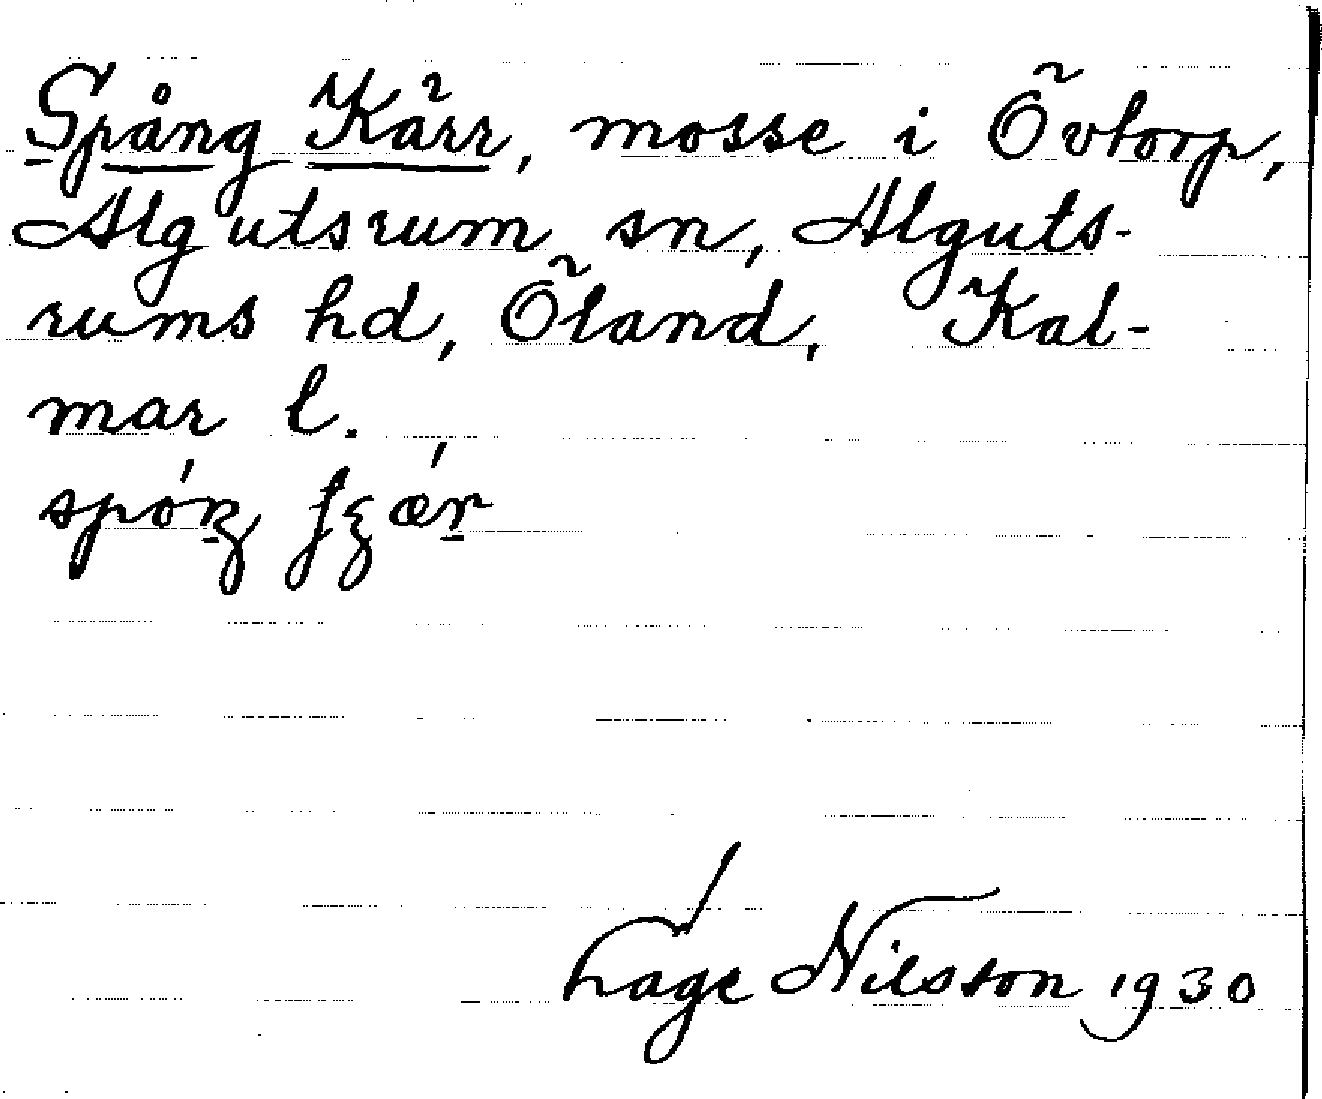 Spång Kärr, mosse i Övtorp,
Algutsrum sn, Alguts-
rums hd, Öland, Kal-
mar l.
Lage Nilsson 1930